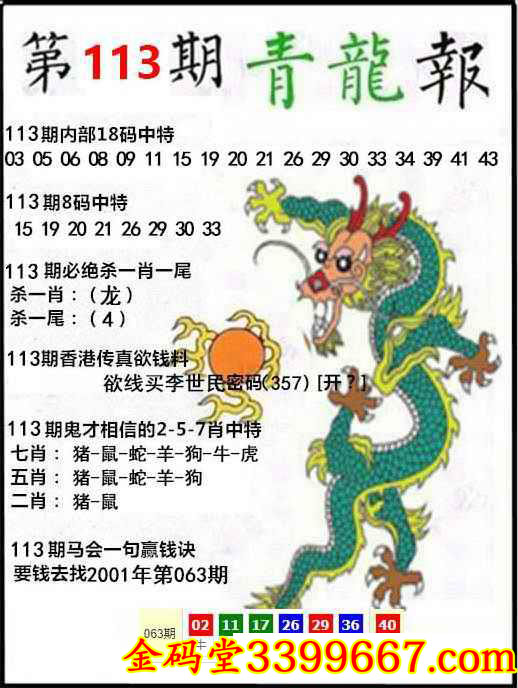 第113期青龍報
113期内部18码中特
03 05 06 08 09 11 15 19 20 21 26 29 30 33 34 39 41 43
113期8码中特
15 19 20 21 26 29 30 33
113期必绝杀一肖一尾
杀一肖：（龙）
杀一尾：（4）
113期香港传真欲钱料
欲线买李世民密码(357) [开？]
113期鬼才相信的2-5-7肖中特
七肖：猪-鼠-蛇-羊-狗-牛-虎
五肖：猪-鼠-蛇-羊-狗
二肖：猪-鼠
113期马会一句赢钱诀
要钱去找2001年第063期
063期 02 11 17 26 29 36 40
牛
金码堂3399667.com